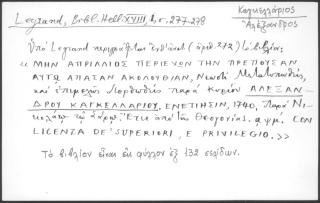 Legrand, Bibl. Hell. XVIII, 1, σ. 277-278
Καγκελλάριος
Ἀλέξανδρος
Ὑπὸ Legrand περιγράφεται ἐνταῦθα (ἀριθ. 272) τὸ βιβλίον:
« ΜΗΝ ΑΠΡΙΛΛΙΟΣ ΠΕΡΙΕΧΩΝ ΤΗΝ ΠΡΕΠΟΥΣΑΝ
ΑΥΤΩ ΑΠΑΣΑΝ ΑΚΟΛΟΥΘΙΑΝ, Νεωστὶ Μετατυπωθεὶς,
καὶ ἐπιμελῶς Διορθωθεὶς παρὰ Κυρίου ΑΛΕΞΑΝ-
ΔΡΟΥ ΚΑΓΚΕΛΛΑΡΙΟΥ, ΕΝΕΤΙΗΣΙΝ, 1740, Παρὰ Νι-
κολάῳ τῷ Σάρῳ. Ἔτει ἀπὸ τῆς Θεογονίας. αψμ΄. CON
LICENZA DE' SUPERIORI, E PRIVILEGIO. >>
Τὸ βιβλίον εἶναι εἰς φύλλον ἐξ 132 σελίδων.